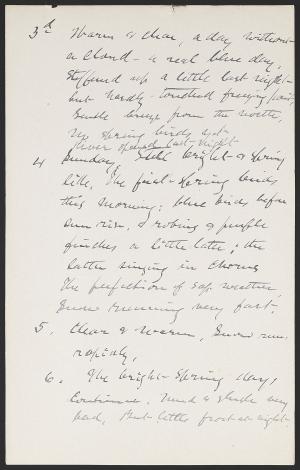 3d Warm & clear, a day without
a cloud - a real blue day.
Stiffened up a little last night -
but hardly touched freezing point,
Gentle breeze from the north,
No spring birds yet.
River opened last night
4 Sunday, Still bright & spring
like. The first spring birds
this morning; blue birds before
sun rise, & robins & purple
finches a little later; the
latter singing in chorus
The perfection of sap weather,
Snow running very fast.
5. Clear & warm, Snow run.
rapidly,
6. The bright spring days,
continue. Mud & slush very
bad, But little frost at night.